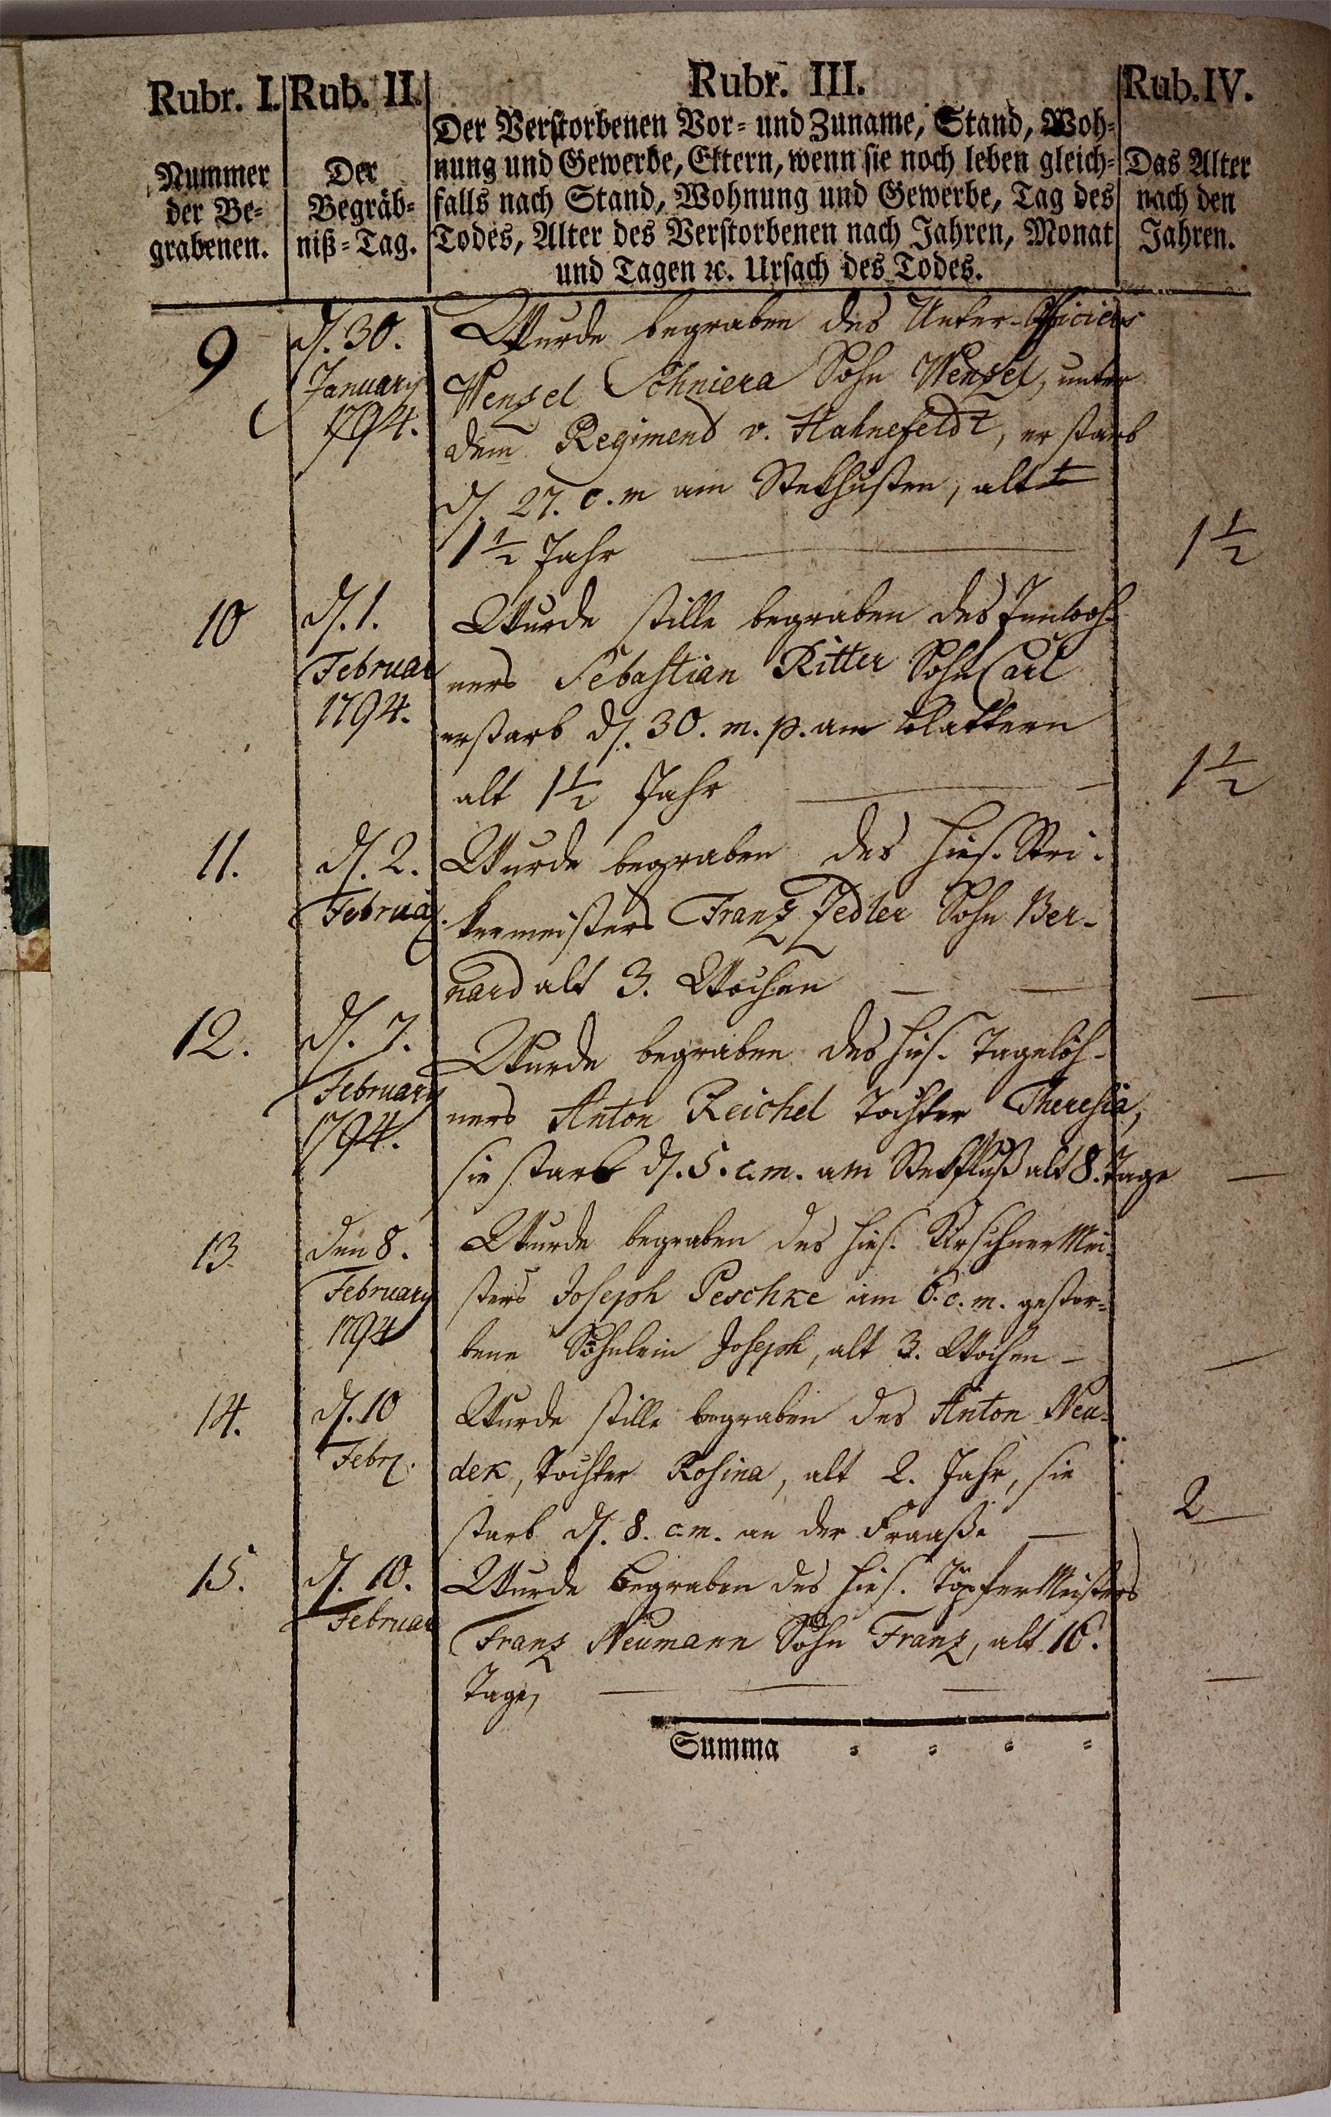 Rubr. I. Rub. II. Rubr. III. Rub. IV.
Nummer der Be=
grabenen.
Der
Begräb=
niß=Tag.
Der Verstorbenen Vor= und Zuname, Stand, Woh=
nung und Gewerbe, Eltern, wenn sie noch leben gleich=
falls nach Stand, Wohnung und Gewerbe, Tag des
Todes, Alter des Verstorbenen nach Jahren, Monat
und Tagen ꝛc. Ursach des Todes.
Das Alter
nach den
Jahren.
9
d. 30.
January
1794.
Wurde begraben des Unter-Officiers
Wenzel Schniera Sohn Wenzel, unter
dem Regiment v. Hahnefeldt, er starb
d. 27. c. m am Stekhusten, alt
1 1/2 Jahr
1 1/2
10
d. 1.
Februar
1794.
Wurde stille begraben des Innwoh-
ners Sebastian Ritter Sohn Carl
er starb d. 30. m. p. am Blattern
alt 1 1/2 Jahr
1 1/2
11.
d. 2.
Februar.
Wurde begraben des hies. Stri-
kermeisters Franz Jedler Sohn Ber-
nard alt 3. Wochen
12.
d. 7.
February
1794.
Wurde begraben des hies. Tagelöh-
ners Anton Reichel Tochter Theresia,
sie starb d. 5. c. m. am Stekfluß alt 8. Tage
13.
den 8.
February
1794
Wurde begraben des hies. Kirschner Mei-
sters Joseph Peschke am 6. c. m. gestor=
bene Söhnlein Joseph, alt 3. Wochen
14.
d. 10
Febr.
Wurde stille begraben des Anton Neu-
dek, Tochter Rosina, alt 2. Jahr, sie
starb d. 8. c. m. an der Fraaße
2
15.
d. 10.
Februar
Wurde begraben des hies. Töpfer Meisters
Franz Neumann Sohn Franz, alt 16.
Tage,
Summa = = = =